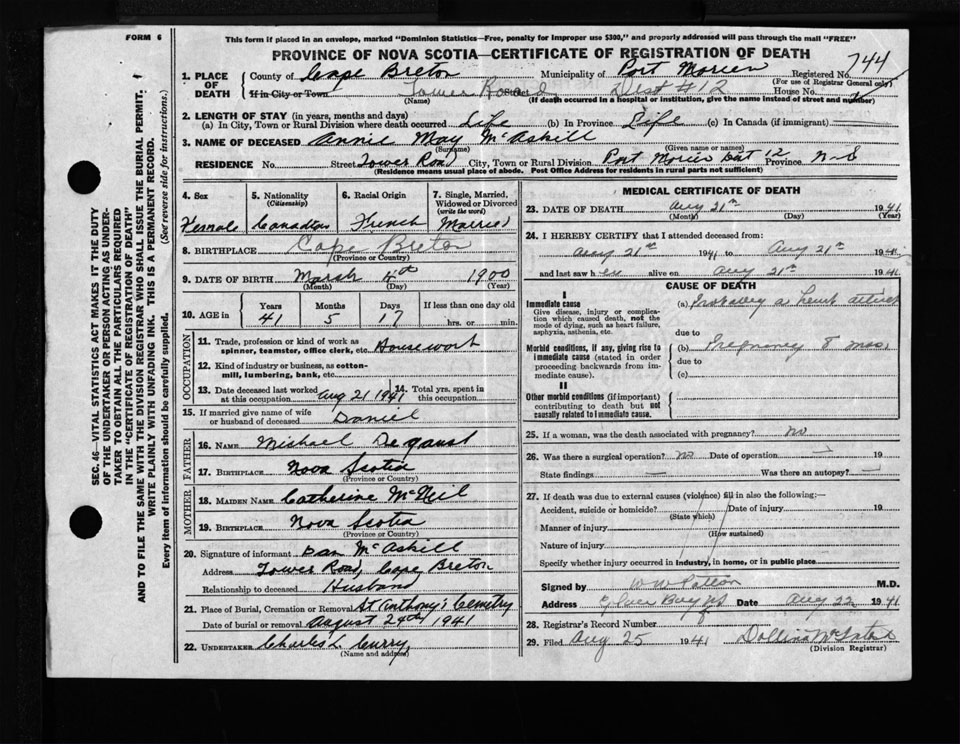 FORM 6
This form if placed in an envelope, marked "Dominion Statistics—Free, penalty for improper use $300," and properly addressed will pass through the mail "FREE"
PROVINCE OF NOVA SCOTIA—CERTIFICATE OF REGISTRATION OF DEATH
744
1. PLACE OF DEATH
County of Cape Breton Municipality of Port Morien Registered No.
(For use of Registrar General only)
If in City or Town Tower Road Dist #12 House No.
(Name) (If death occurred in a hospital or institution, give the name instead of street and number)
2. LENGTH OF STAY (in years, months and days)
(a) In City, Town or Rural Division where death occurred Life (b) In Province Life (c) In Canada (if immigrant)
3. NAME OF DECEASED Annie May McAskill
(Surname) (Given name or names)
RESIDENCE No. Street Tower Road City, Town or Rural Division Port Morien Dist 12 Province N-S
(Residence means usual place of abode. Post Office Address for residents in rural parts not sufficient)
4. Sex
Female
5. Nationality (Citizenship)
Canadian
6. Racial Origin
French
7. Single, Married, Widowed or Divorced (write the word)
Married
8. BIRTHPLACE Cape Breton
(Province or Country)
9. DATE OF BIRTH Marsh 1900
(Month) (Day) (Year)
10. AGE in
Years Months Days If less than one day old
41 5 17 hrs. or min.
OCCUPATION
11. Trade, profession or kind of work as spinner, teamster, office clerk, etc. Housework
12. Kind of industry or business, as cotton-mill, lumbering, bank, etc.
13. Date deceased last worked at this occupation Aug 21 1941
14. Total yrs. spent in this occupation
15. If married give name of wife or husband of deceased Daniel
FATHER
16. NAME Michael Degaust
17. BIRTHPLACE Nova Scotia
(Province or Country)
MOTHER
18. MAIDEN NAME Catherine McNeil
19. BIRTHPLACE Nova Scotia
(Province or Country)
20. Signature of informant Dan McAskill
Address Tower Road, Cape Breton
Relationship to deceased Husband
21. Place of Burial, Cremation or Removal St Anthony's Cemetry
Date of burial or removal August 24th 1941
22. UNDERTAKER Charles L. Curry
(Name and address)
MEDICAL CERTIFICATE OF DEATH
23. DATE OF DEATH Aug 21st 1941
(Month) (Day) (Year)
24. I HEREBY CERTIFY that I attended deceased from:
Aug 21st 1941 to Aug 21st 1941
and last saw her alive on Aug 21st 1941
CAUSE OF DEATH
I
Immediate cause
Give disease, injury or complication which caused death, not the mode of dying, such as heart failure, asphyxia, asthenia, etc.
(a) Probably a heart attack
due to
Morbid conditions, if any, giving rise to immediate cause (stated in order proceeding backwards from immediate cause).
(b) Pregnancy 8 mos
due to
(c)
II
Other morbid conditions (if important) contributing to death but not causally related to immediate cause.
25. If a woman, was the death associated with pregnancy? no
26. Was there a surgical operation? no Date of operation — 19
State findings — Was there an autopsy? —
27. If death was due to external causes (violence) fill in also the following:—
Accident, suicide or homicide? Date of injury 19
(State which)
Manner of injury
(How sustained)
Nature of injury
Specify whether injury occurred in industry, in home, or in public place
Signed by M.D.
Address Glace Bay NS Date Aug 22 1941
28. Registrar's Record Number
29. Filed Aug 25 1941
(Division Registrar)
SEC. 46—VITAL STATISTICS ACT MAKES IT THE DUTY
OF THE UNDERTAKER OR PERSON ACTING AS UNDER-
TAKER TO OBTAIN ALL THE PARTICULARS REQUIRED
IN THE "CERTIFICATE OF REGISTRATION OF DEATH"
AND TO FILE THE SAME WITH THE DIVISION REGISTRAR WHO SHALL ISSUE THE BURIAL PERMIT.
WRITE PLAINLY WITH UNFADING INK. THIS IS A PERMANENT RECORD.
Every item of information should be carefully supplied. (See reverse side for instructions.)